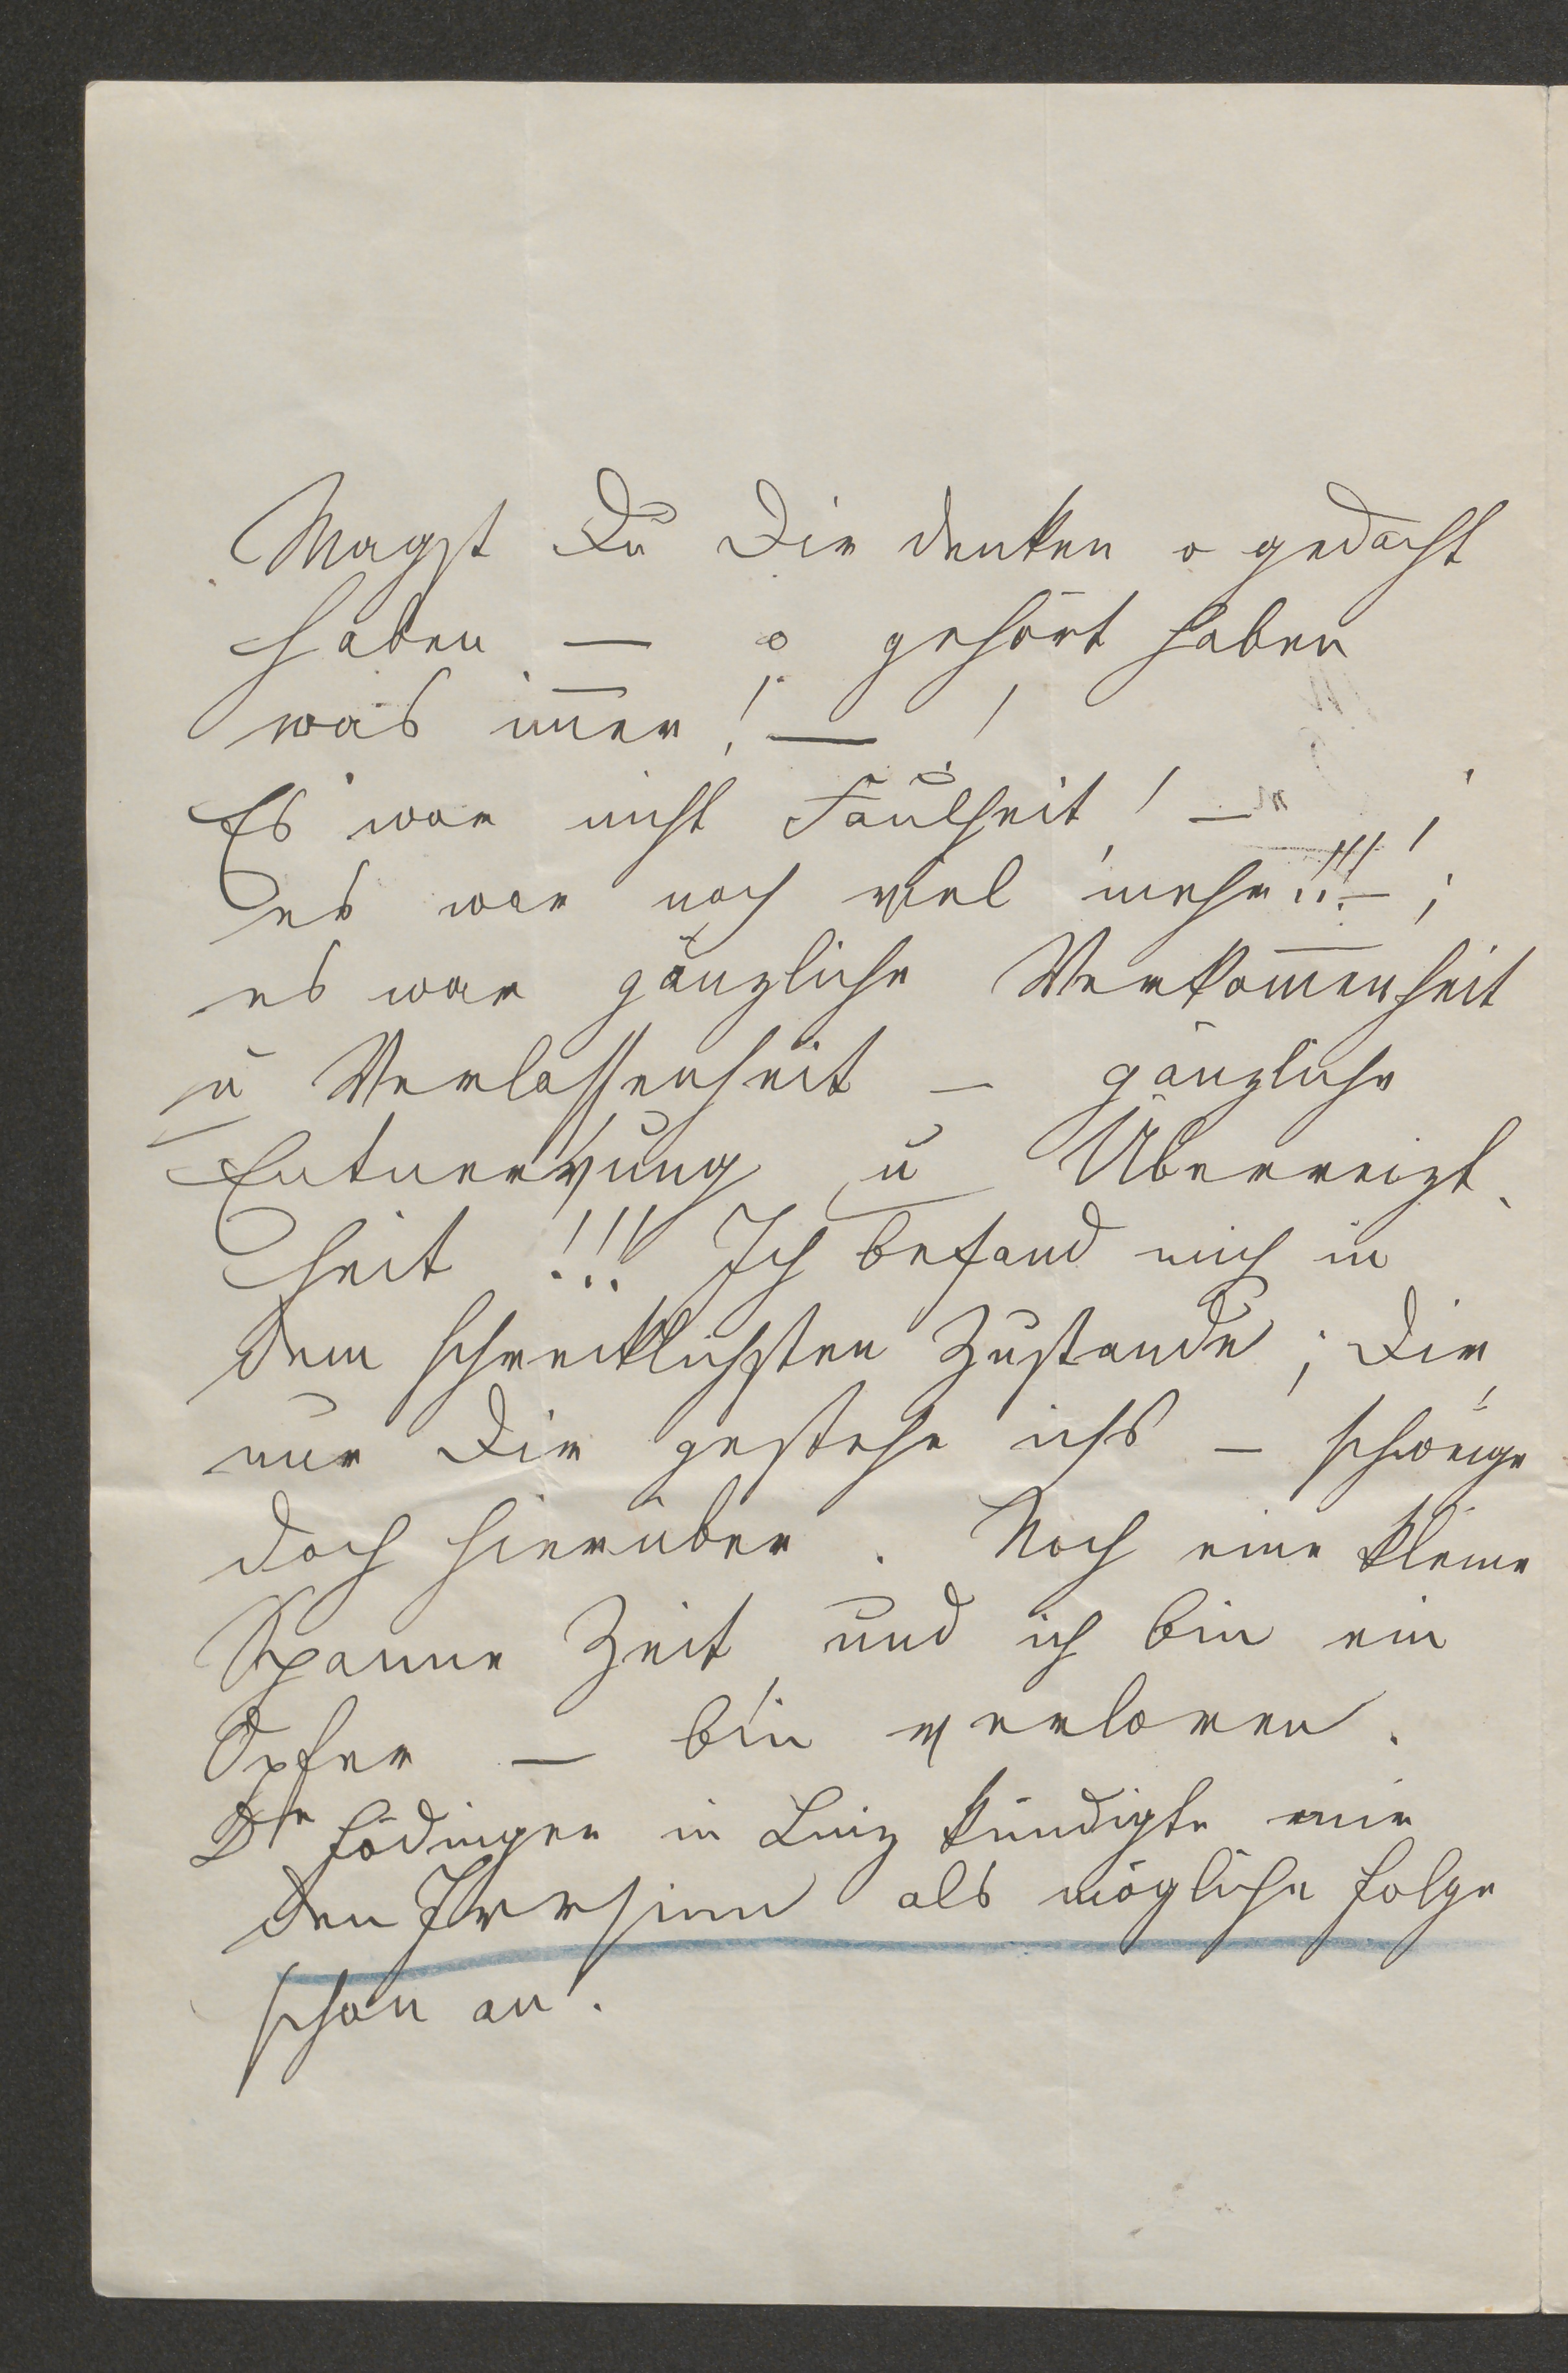 Magst Du Dir denken o gedacht
haben — o gehört haben
was im̅er! —!
Es war nicht Faulheit! —
es war noch viel mehr!!! —;
es war gänzliche Verkom̅enheit
u Verlassenheit — gänzliche
Entnervung u Überreizt-
heit!!! Ich befand mich in
dem schrecklichsten Zustande; Dir,
nur Dir gestehe ichs — schweige
doch hierüber. Noch eine kleine
Spanne Zeit, und ich bin ein
Opfer — bin verloren.
Dr Födinger in Linz kündigte mir
den Irrsinn als mögliche Folge
schon an.